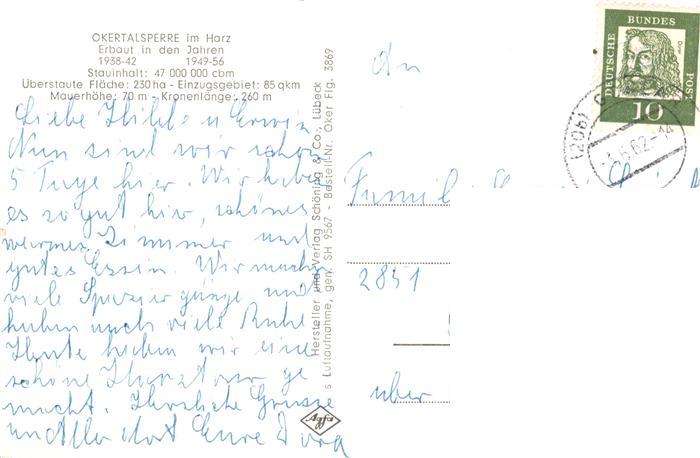 OKERTALSPERRE im Harz
Erbaut in den Jahren
1938-42 1949-56
Stauinhalt: 47 000 000 cbm
Überstaute Fläche: 230 ha - Einzugsgebiet: 85 qkm
Mauerhöhe: 70 m - Kronenlänge: 260 m
Liebe Hilde u Erwin
Nun sind wir schon
5 Tage hier. Wir haben
es so gut hier, schönes
warmes Zimmer und
gutes Essen. Wir machen
viele Spaziergänge und
haben auch viele Ruhe
Heute haben wir eine
schöne Harztour ge
macht. Herzliche Grüsse
an Alle dort Eure Dora
Hersteller und Verlag Schöning & Co., Lübeck
s Luftaufnahme, gen. SH 9567 - Bestell-Nr. Oker Flg. 3869
Agfa
An
Famili
2851
über
DEUTSCHE BUNDESPOST
Dürer
10
(20b)
6.62-14